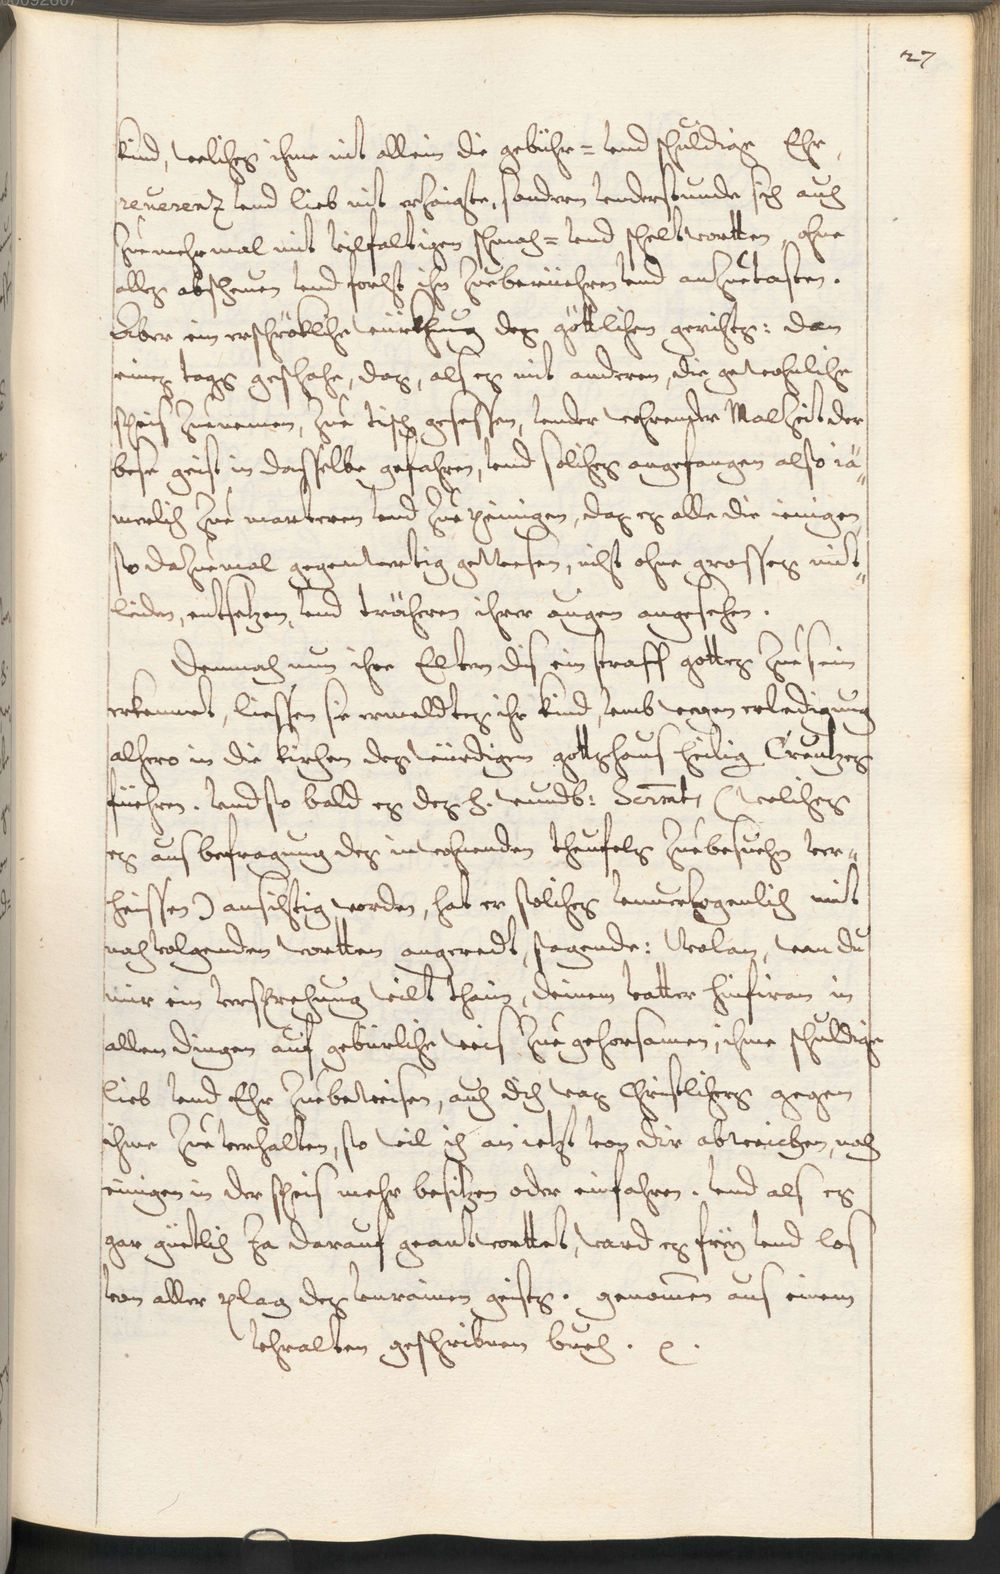 27
kind, welches ihme nit allein die gebühr= und schuldige Ehr,
reuerentz und lieb nit erzaigte, sondern understunde sich auch
zuemehrmal mit vilfaltigen schmach= und scheltwortten, ohne
alles abscheuen und forcht ihn zueberüehren und anzuetasten.
Aber ein erschrökliche würkhung des göttlichen gerichts: dan
eines tags geschahe, das, als es mit anderen, die gewohnliche
speis zuenemen, zue tisch gesessen, under wehrender Malzeit der
bese geist in dasselbe gefahren, und solches angefangen also iä„
merlich zue marteren und zue peinigen, das es alle die ienigen,
so dazuemal gegenwertig gewesen, nicht ohne grosses mit„
leiden, entsetzen, und trächeren ihrer augen angesehen.
Demnach nun ihre Eltern dis ein straff gottes zue sein
erkennet, liessen sie ermeldtes ihr kind, umb wegen erledigung
alhero in die kirchen des würdigen gottshaus heilig Creutzes
füehren. und so bald es des h. wundb: Sacramts (welches
es aus befragung des inwohnenden theufels zuebesuchen ver„
heissen) ansichtig worden, hat er solches unuerzogenlich mit
nachvolgenden wortten angeredt, sagende: Wolan, wan du
mir ein versprechung wilt thuin, deinem vatter hinfiran in
allen dingen auf gebürliche weis zue gehorsamen, ihme schuldige
lieb und Ehr zuebeweisen, auch dich was Christlichers gegen
ihme zue verhalten, so wil ich an ietzt von dir abweichen, noch
einigen in der speis mehr besitzen oder einfahren. und als es
gar güetlich Ja darauf geantworttet, ward es frey und los
von aller plag des unrainen geists. genomen aus einem
uhralten geschribnen buech.